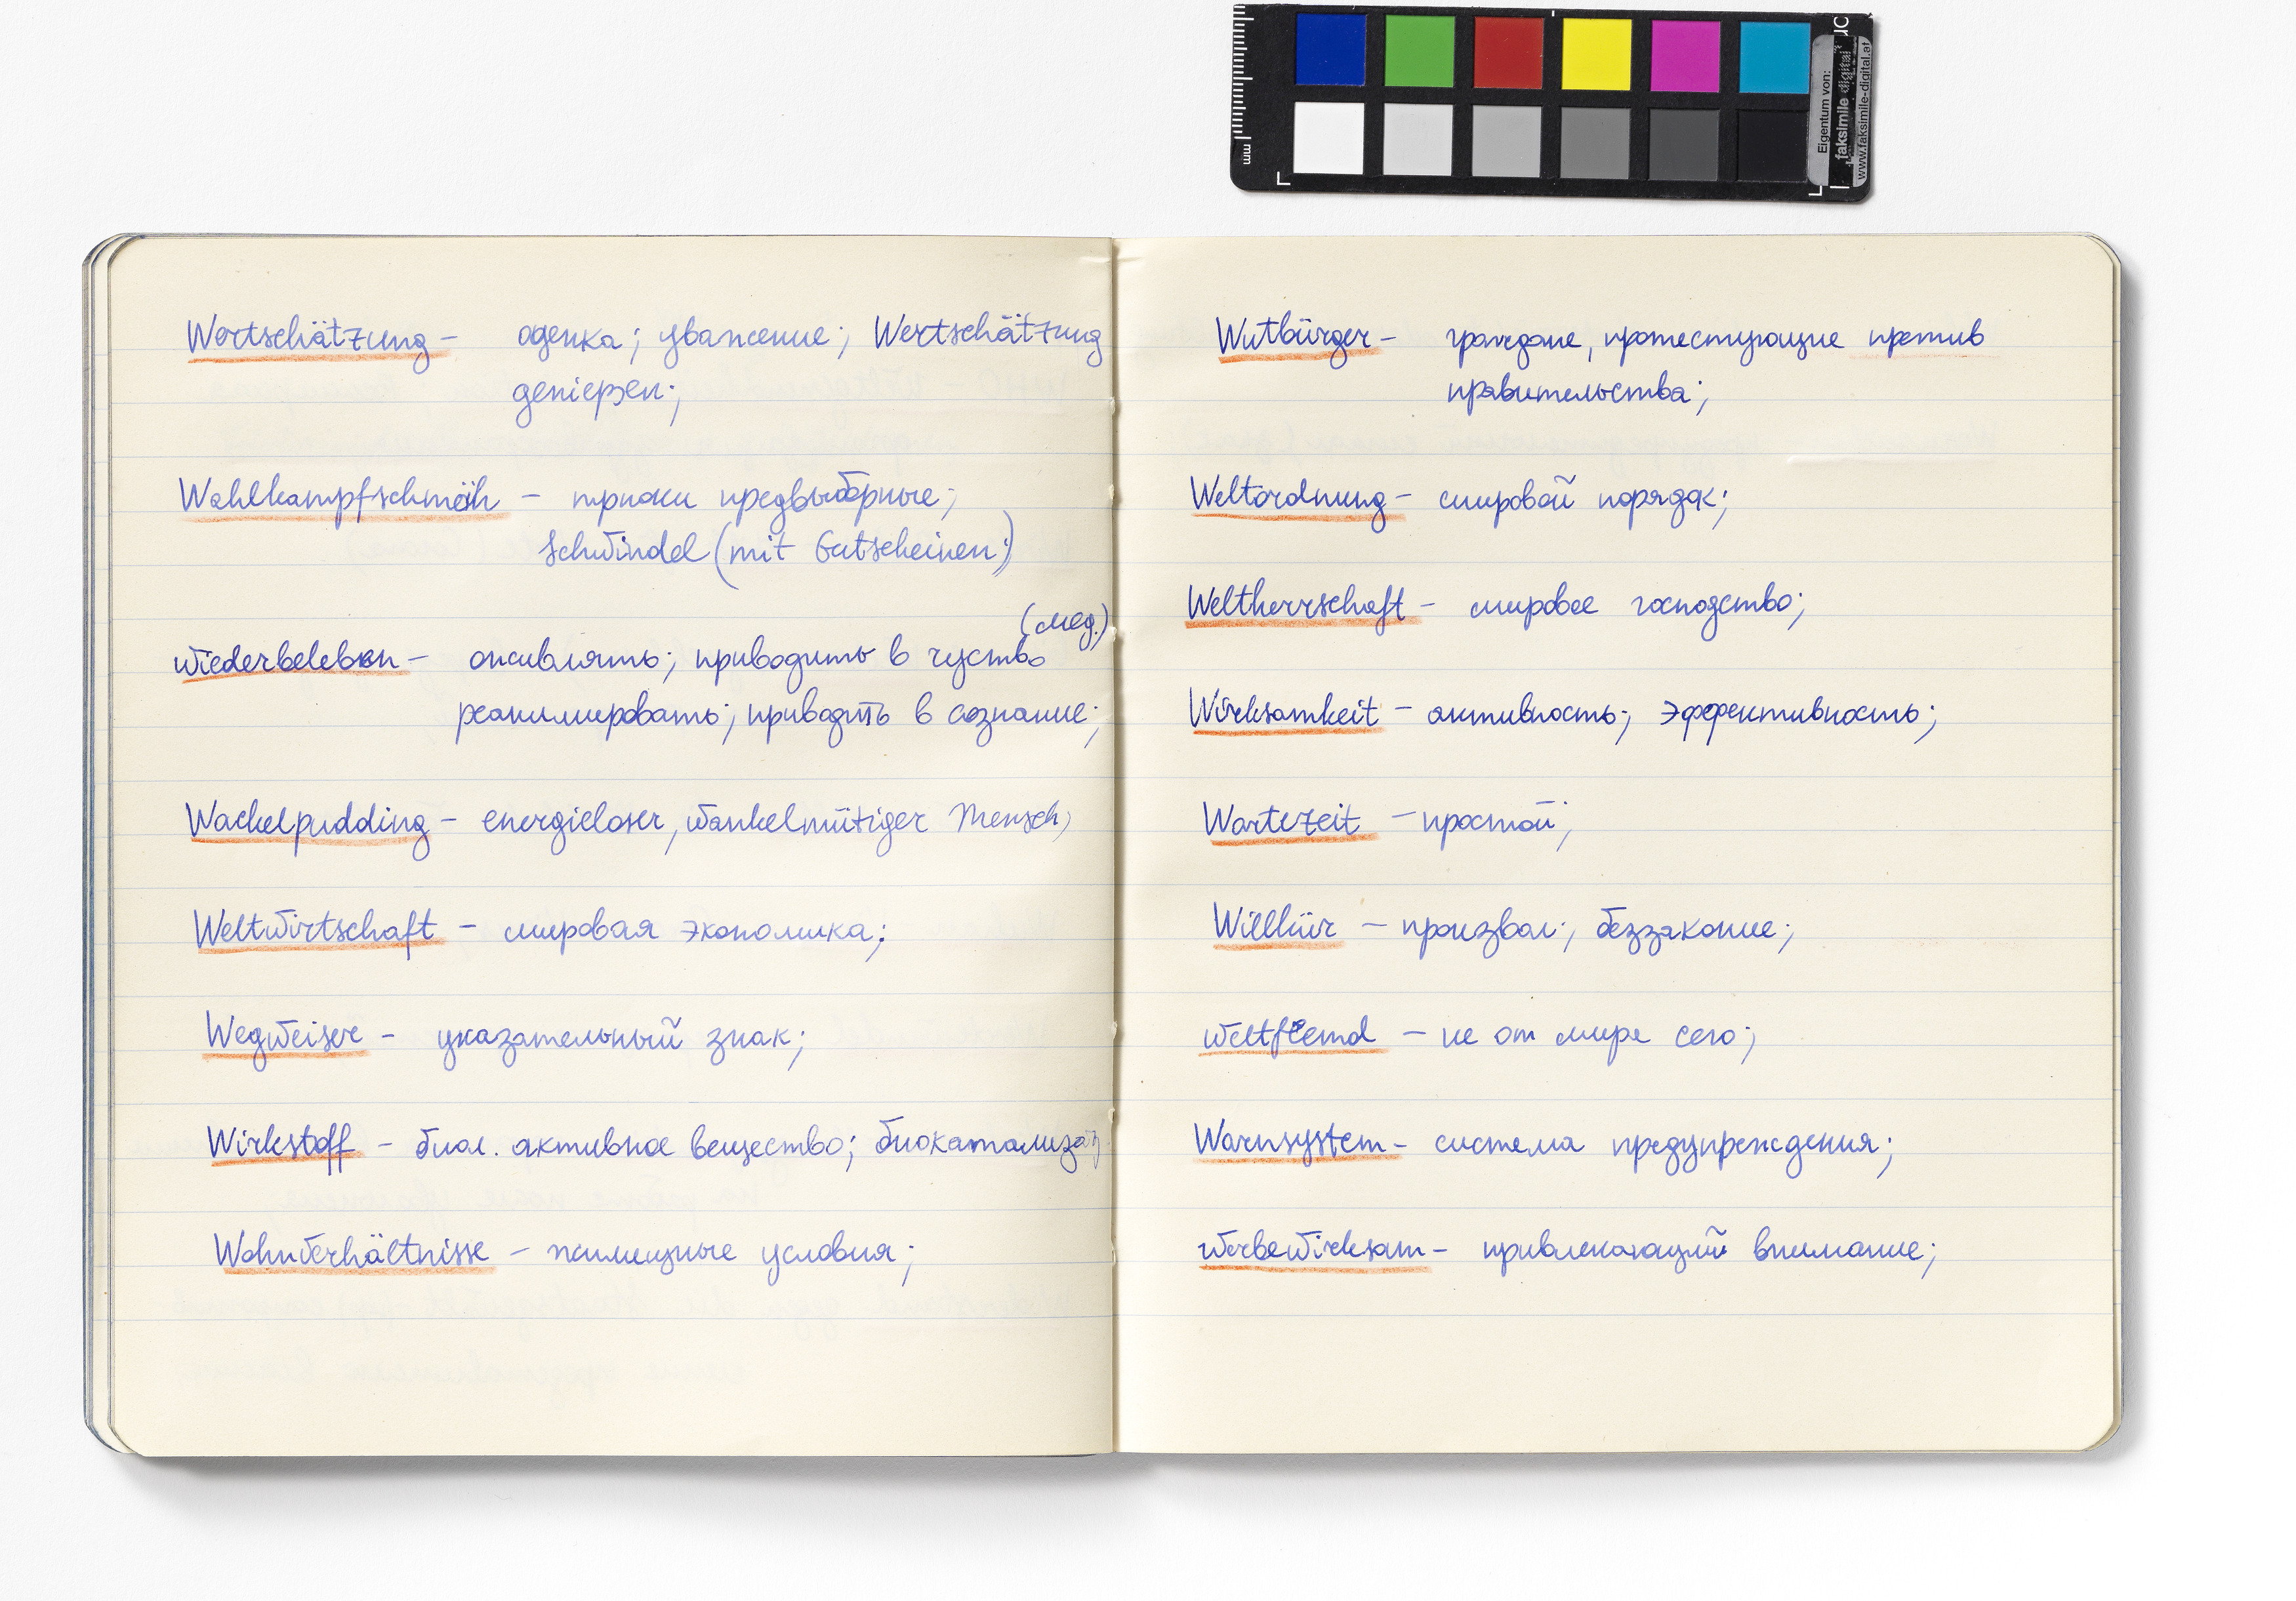 mm
Eigentum von:
faksimile digital
www.faksimile-digital.at
Wertschätzung – оценка; уважение; Wertschätzung
genießen;
Wahlkampfschmäh – трюки предвыборные;
Schwindel (mit Gutscheinen;)
(мед.)
wiederbeleben – оживлять; приводить в чуство
реанимировать; приводить в сознание;
Wackelpudding – energieloser, wankelmütiger Mensch;
Weltwirtschaft – мировая экономика;
Wegweiser – указательный знак;
Wirkstoff – биол. активное вещество;
Wohnverhältnisse – жилищные условия;
Wutbürger – граждане, протестующие против
правительства;
Weltordnung – мировой порядок;
Weltherrschaft – мировое господство;
Wirksamkeit – активность; эффективность;
Wartezeit – простой;
Willkür – произвол; беззаконие;
weltfremd – не от мира сего;
Warnsystem – система предупреждения;
werbewirksam – привлекающий внимание;